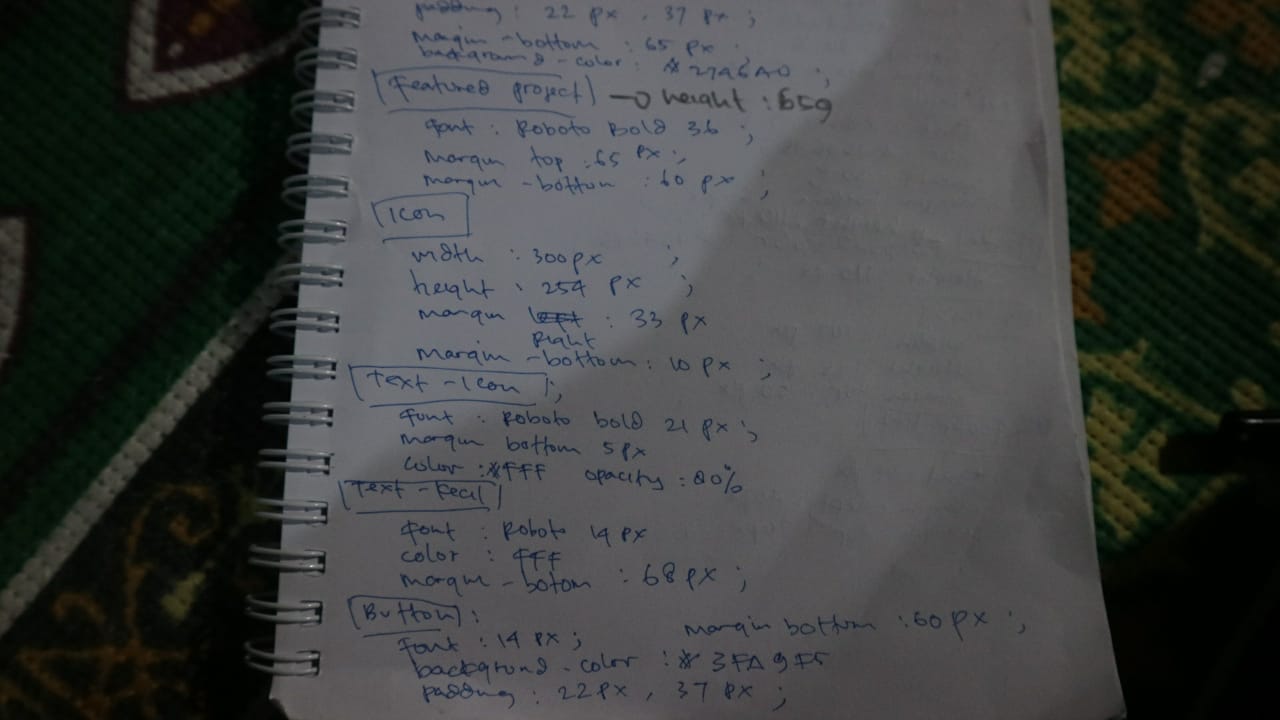 padding : 22 px , 37 px ;
margin-bottom : 65 px
background-color : #27A6A0 ;
Featured project → height : 659
font : Roboto Bold 36 ;
margin top : 65 px ;
margin-bottom : 60 px ;
Icon
width : 300px ;
height : 254 px ;
margin left : 33 px
Right
margin-bottom : 10 px ;
Text-Icon ;
font : Roboto bold 21 px ;
margin bottom 5px
color : #FFF opacity : 80%
Text-Kecil
font : Roboto 14 px
color : FFF
margin-botom : 68 px ;
Button :
font : 14 px ; margin bottom : 60 px ;
background-color : # 3FA9F5
padding : 22px , 37 px ;